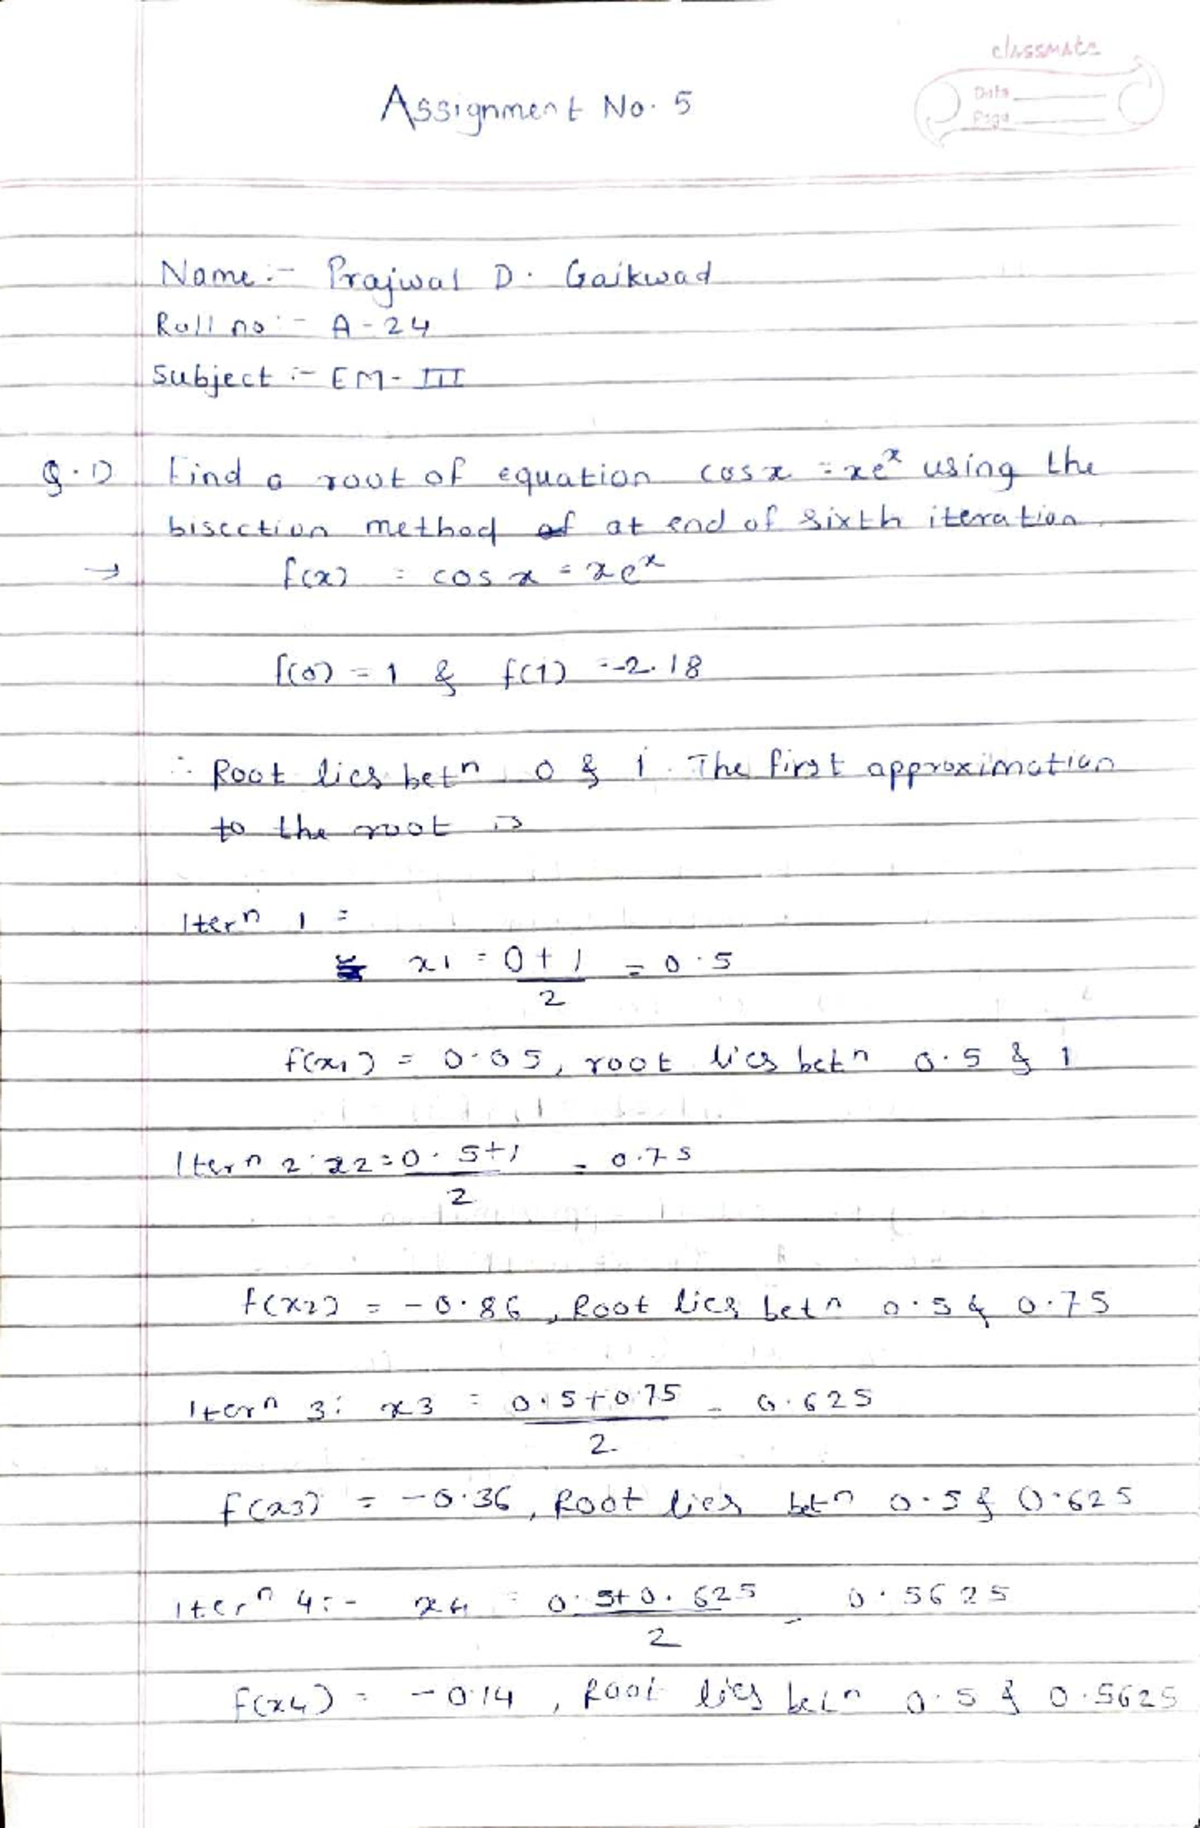 classmate
Date
Page
Assignment No. 5
Name:- Prajwal D. Gaikwad
Roll no:- A-24
Subject:- EM-III
Q.1) Find a root of equation cosx = xeˣ using the
bisection method of at end of sixth iteration.
→ f(x) = cos x = xeˣ
f(0) = 1 & f(1) = -2.18
∴ Root lies betⁿ 0 & 1. The first approximation
to the root is
Iterⁿ 1 =
x1 = 0+1/2 = 0.5
f(x₁) = 0.05, root lies betn 0.5 & 1
Itern 2: x2 = 0.5+1/2 = 0.75
f(x2) = -0.86, Root lies betn 0.5 & 0.75
Iterⁿ 3: x3 = 0.5+0.75/2 = 0.625
f(x3) = -0.36, Root lies betn 0.5 & 0.625
Iterⁿ 4:- x4 = 0.5+0.625/2 = 0.5625
f(x4) = -0.14, Root lies betn 0.5 & 0.5625